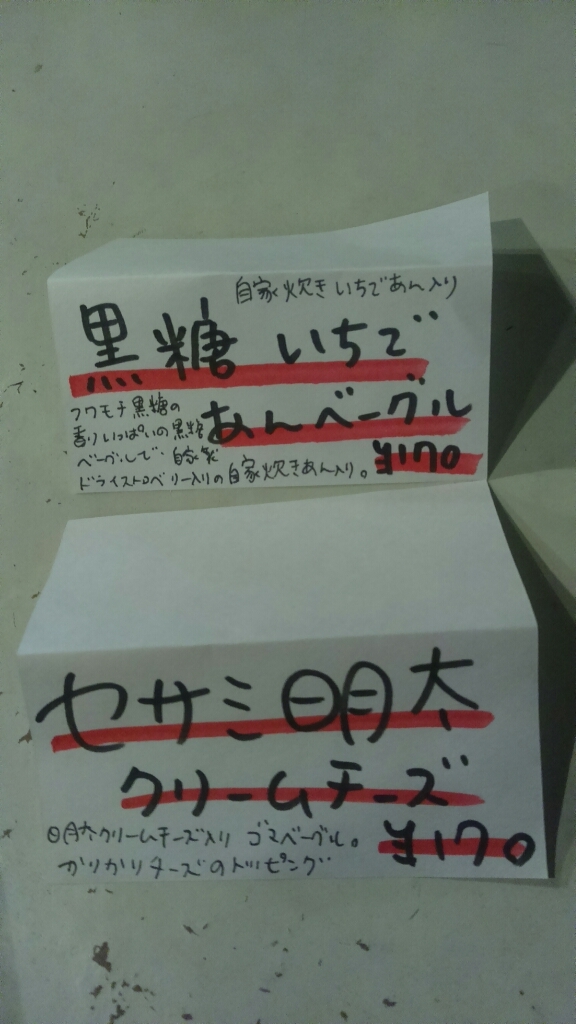 自家炊きいちごあん入り
黒糖いちご
あんベーグル
フワモチ黒糖の
香りいっぱいの黒糖
ベーグルで自家製
ドライストロベリー入りの自家炊きあん入り。
¥170
セサミ明太
クリームチーズ
明太クリームチーズ入り ゴマベーグル。
¥170
かりかりチーズのトッピング